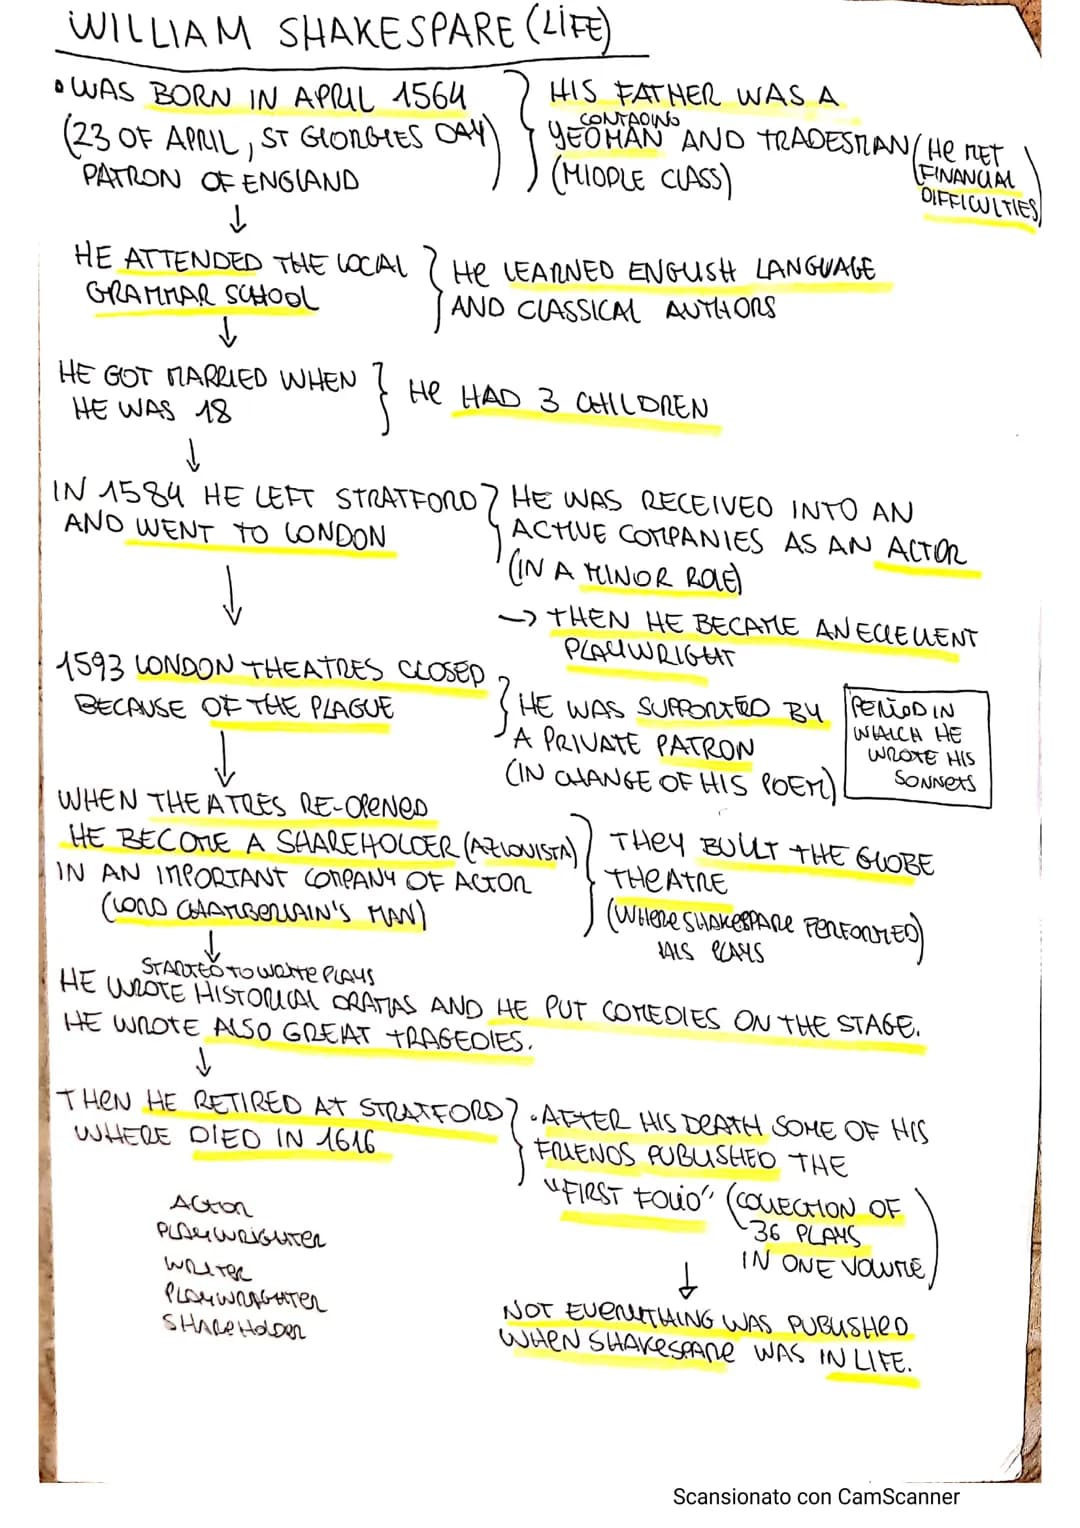 WILLIAM SHAKESPARE (LIFE)
• WAS BORN IN APRIL 1564
(23 OF APRIL, ST GEORGIES DAY)
PATRON OF ENGLAND
HIS FATHER WAS A
CONTADINO
YEOMAN AND TRADESMAN
(MIDDLE CLASS)
(HE MET
FINANCIAL
DIFFICULTIES)
↓
HE ATTENDED THE LOCAL
GRAMMAR SCHOOL
HE LEARNED ENGLISH LANGUAGE
AND CLASSICAL AUTHORS
↓
HE GOT MARRIED WHEN
HE WAS 18
HE HAD 3 CHILDREN
↓
IN 1584 HE LEFT STRATFORD
AND WENT TO LONDON
HE WAS RECEIVED INTO AN
ACTIVE COMPANIES AS AN ACTOR
(IN A MINOR ROLE)
→ THEN HE BECAME AN ECLELLENT
PLAYWRIGHT
↓
1593 LONDON THEATRES CLOSED
BECAUSE OF THE PLAGUE
HE WAS SUPPORTED BY
A PRIVATE PATRON
(IN CHANGE OF HIS POEM)
PERIOD IN
WHICH HE
WROTE HIS
SONNETS
↓
WHEN THEATRES RE-OPENED
HE BECOME A SHAREHOLDER (AZIONISTA)
IN AN IMPORTANT COMPANY OF ACTOR
(LORD CHAMBERLAIN'S MAN)
THEY BUILT THE GLOBE
THEATRE
(WHERE SHAKESPARE PERFORMED)
HIS PLAYS
↓
STARTED TO WRITE PLAYS
HE WROTE HISTORICAL DRAMAS AND HE PUT COMEDIES ON THE STAGE.
HE WROTE ALSO GREAT TRAGEDIES.
↓
THEN HE RETIRED AT STRATFORD
WHERE DIED IN 1616
• AFTER HIS DEATH SOME OF HIS
FRIENDS PUBLISHED THE
"FIRST FOLIO" (COLLECTION OF
36 PLAYS
IN ONE VOLUME)
↓
NOT EVERYTHING WAS PUBLISHED
WHEN SHAKESPARE WAS IN LIFE.
ACTOR
PLAYWRIGHTER
WRITER
PLAYWRAGHTER
SHAREHOLDER
Scansionato con CamScanner